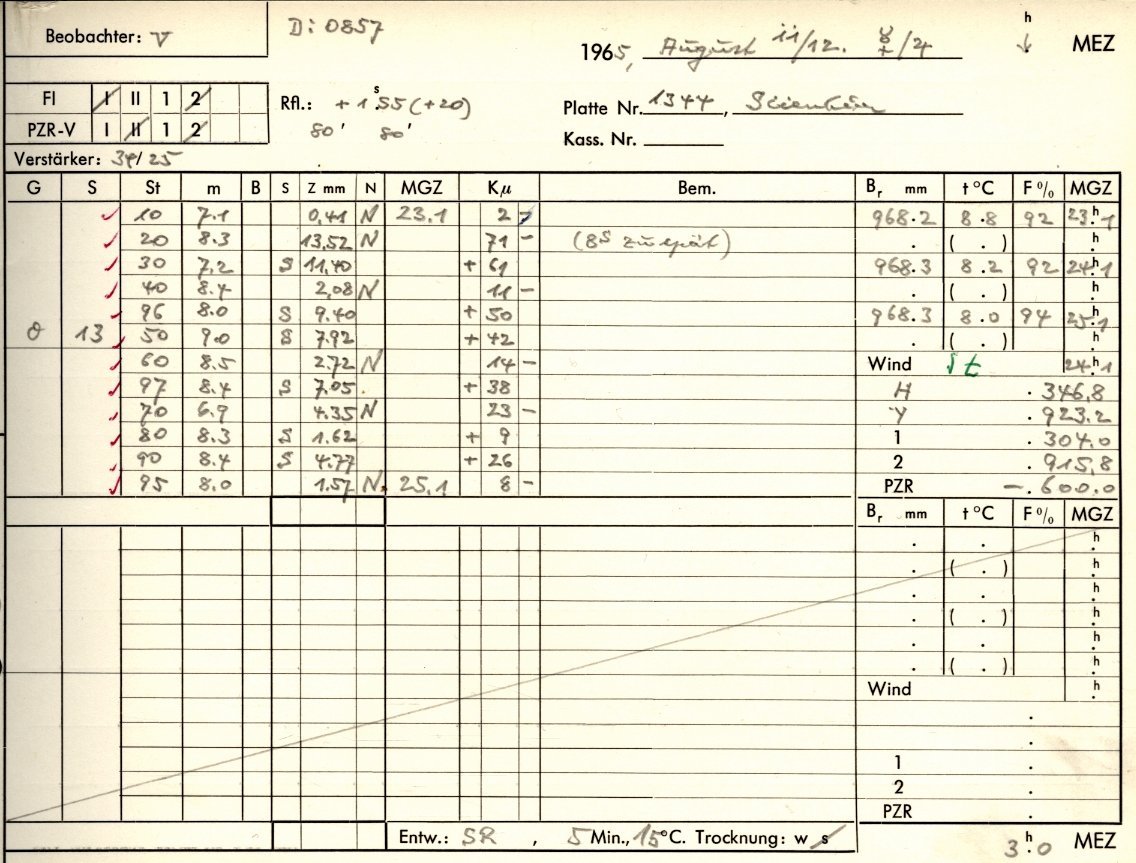 D: 0857
Beobachter: V
1965, August 11/12. ☿/♃ h ↓ MEZ
FI I II 1 2
Rfl.: + 1 s 55 (+20)
Platte Nr. 1344,
PZR-V I II 1 2
80' 80'
Kass. Nr.
Verstärker: 34/25
G S St m B S Z mm N MGZ Kμ Bem. Br mm t °C F % MGZ
✓ 10 7.1 0,41 N 23.1 2 - 968.2 8.8 92 23.h1
✓ 20 8.3 13,52 N 71 - (8s zu spät) . ( . ) h.
✓ 30 7,2 S 11,40 + 61 968.3 8.2 92 24.h1
✓ 40 8.4 2,08 N 11 - . ( . ) h.
✓ 96 8.0 S 9.40 + 50 968.3 8.0 94 25.h1
13 ✓ 50 9.0 S 7.92 + 42 . ( . ) h.
✓ 60 8.5 2.72 N 14 - Wind st 24.h1
✓ 97 8.4 S 7.05. + 38 H . 346,8
✓ 70 6.9 4.35 N 23 - Y . 923.2
✓ 80 8.3 S 1.62 + 9 1 . 304.0
✓ 90 8.4 S 4.77 + 26 2 . 915,8
✓ 95 8.0 1.57 N. 25,1 8 - PZR -. 600.0
Br mm t °C F % MGZ
. . h.
. ( . ) h.
. . h.
. ( . ) h.
. . h.
. ( . ) h.
Wind h.
.
.
1 .
2 .
PZR .
Entw.: SR , 5 Min., 15°C. Trocknung: w s 3 h. 0 MEZ